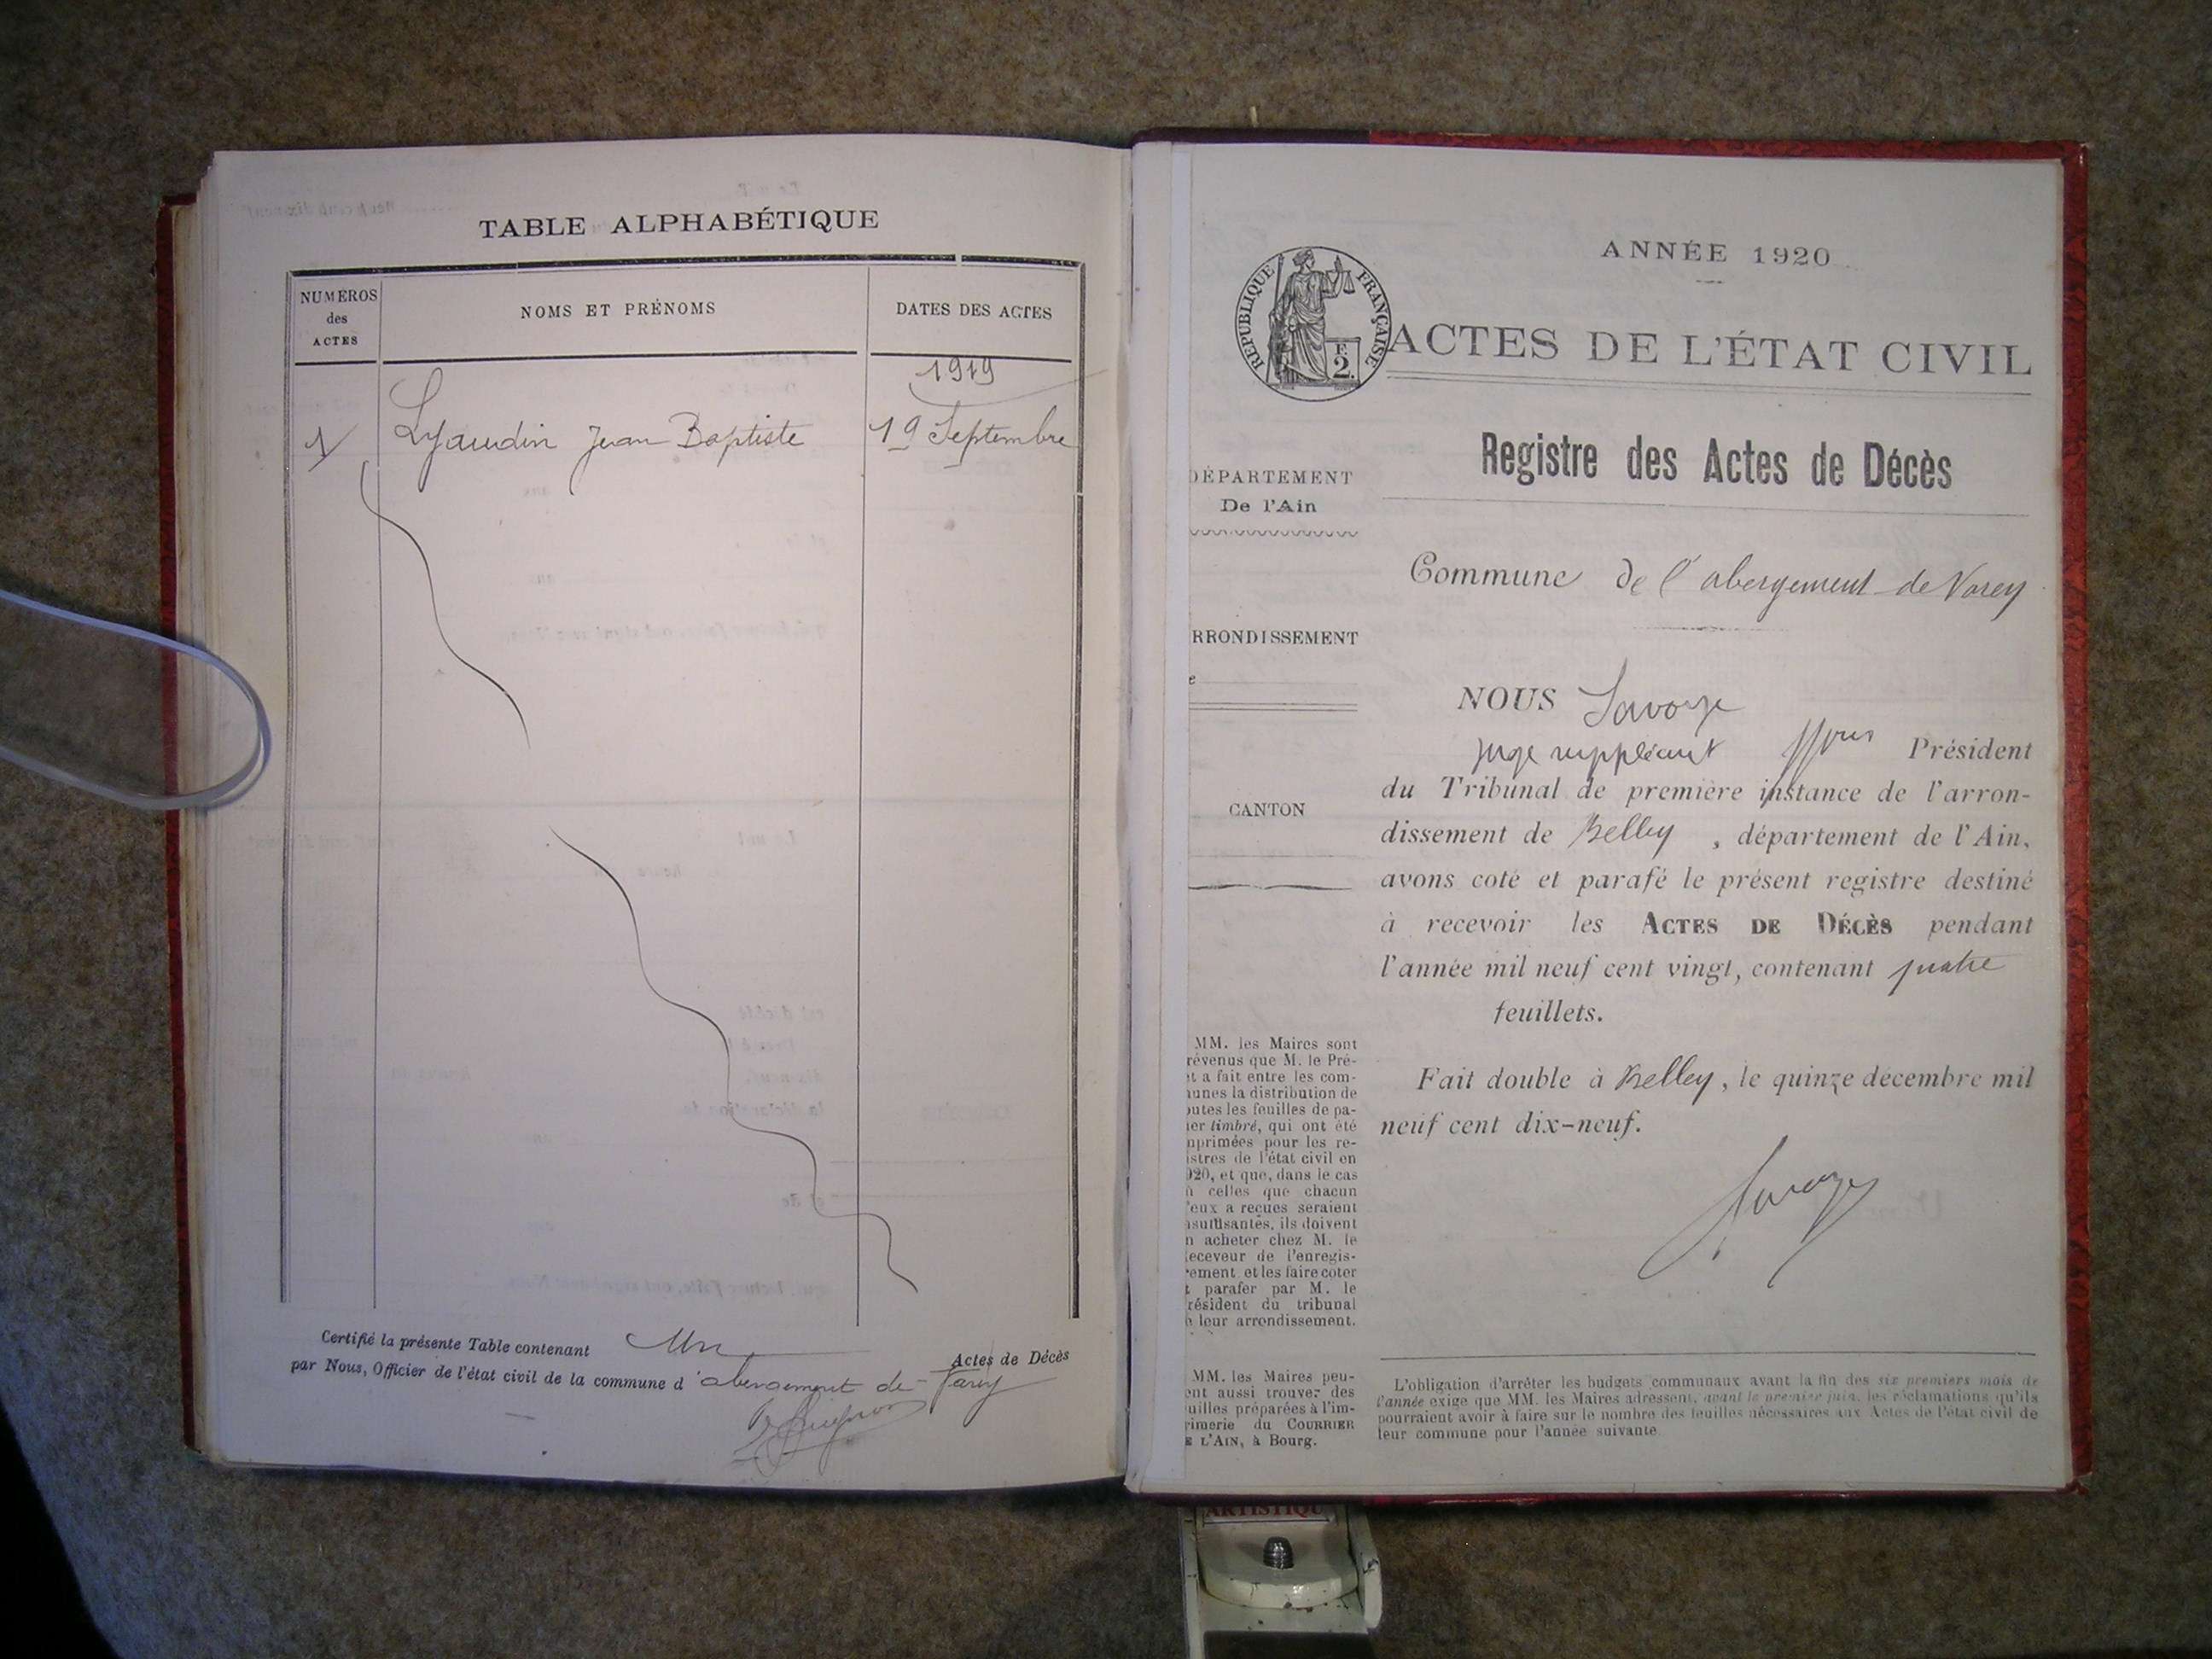 TABLE ALPHABÉTIQUE
NUMÉROS
des
ACTES
NOMS ET PRÉNOMS
DATES DES ACTES
1919
1 Lyaudin Jean Baptiste 19 Septembre
Certifié la présente Table contenant Un Actes de Décès
par Nous, Officier de l'état civil de la commune d'abergement de Varey
ANNÉE 1920
RÉPUBLIQUE FRANÇAISE
F.
2.
ACTES DE L'ÉTAT CIVIL
Registre des Actes de Décès
DÉPARTEMENT
De l'Ain
Commune de l'abergement de Varey
RRONDISSEMENT
e
CANTON
NOUS Savoye
juge suppléant pour Président
du Tribunal de première instance de l'arron-
dissement de Belley, département de l'Ain,
avons coté et parafé le présent registre destiné
à recevoir les ACTES DE DÉCÈS pendant
l'année mil neuf cent vingt, contenant quatre
feuillets.
Fait double à Belley, le quinze décembre mil
neuf cent dix-neuf.
Savoye
MM. les Maires sont
révenus que M. le Pré-
et a fait entre les com-
unes la distribution de
outes les feuilles de pa-
ier timbré, qui ont été
mprimées pour les re-
istres de l'état civil en
920, et que, dans le cas
ù celles que chacun
'eux a reçues seraient
nsuffisantes, ils doivent
n acheter chez M. le
eceveur de l'enregis-
rement et les faire coter
t parafer par M. le
résident du tribunal
e leur arrondissement.
MM. les Maires peu-
ent aussi trouver des
uilles préparées à l'im-
rimerie du COURRIER
E L'AIN, à Bourg.
L'obligation d'arrêter les budgets communaux avant la fin des six premiers mois de
l'année exige que MM. les Maires adressent, avant le premier juin, les réclamations qu'ils
pourraient avoir à faire sur le nombre des feuilles nécessaires aux Actes de l'état civil de
leur commune pour l'année suivante
ARTISTIQU